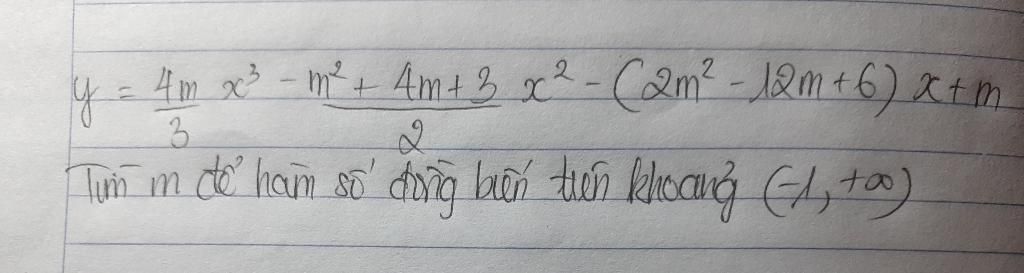 y = 4m/3 x³ - m² + 4m + 3/2 x² - (2m² - 12m + 6) x + m
Tìm m để hàm số đồng biến trên khoảng (-1, +∞)